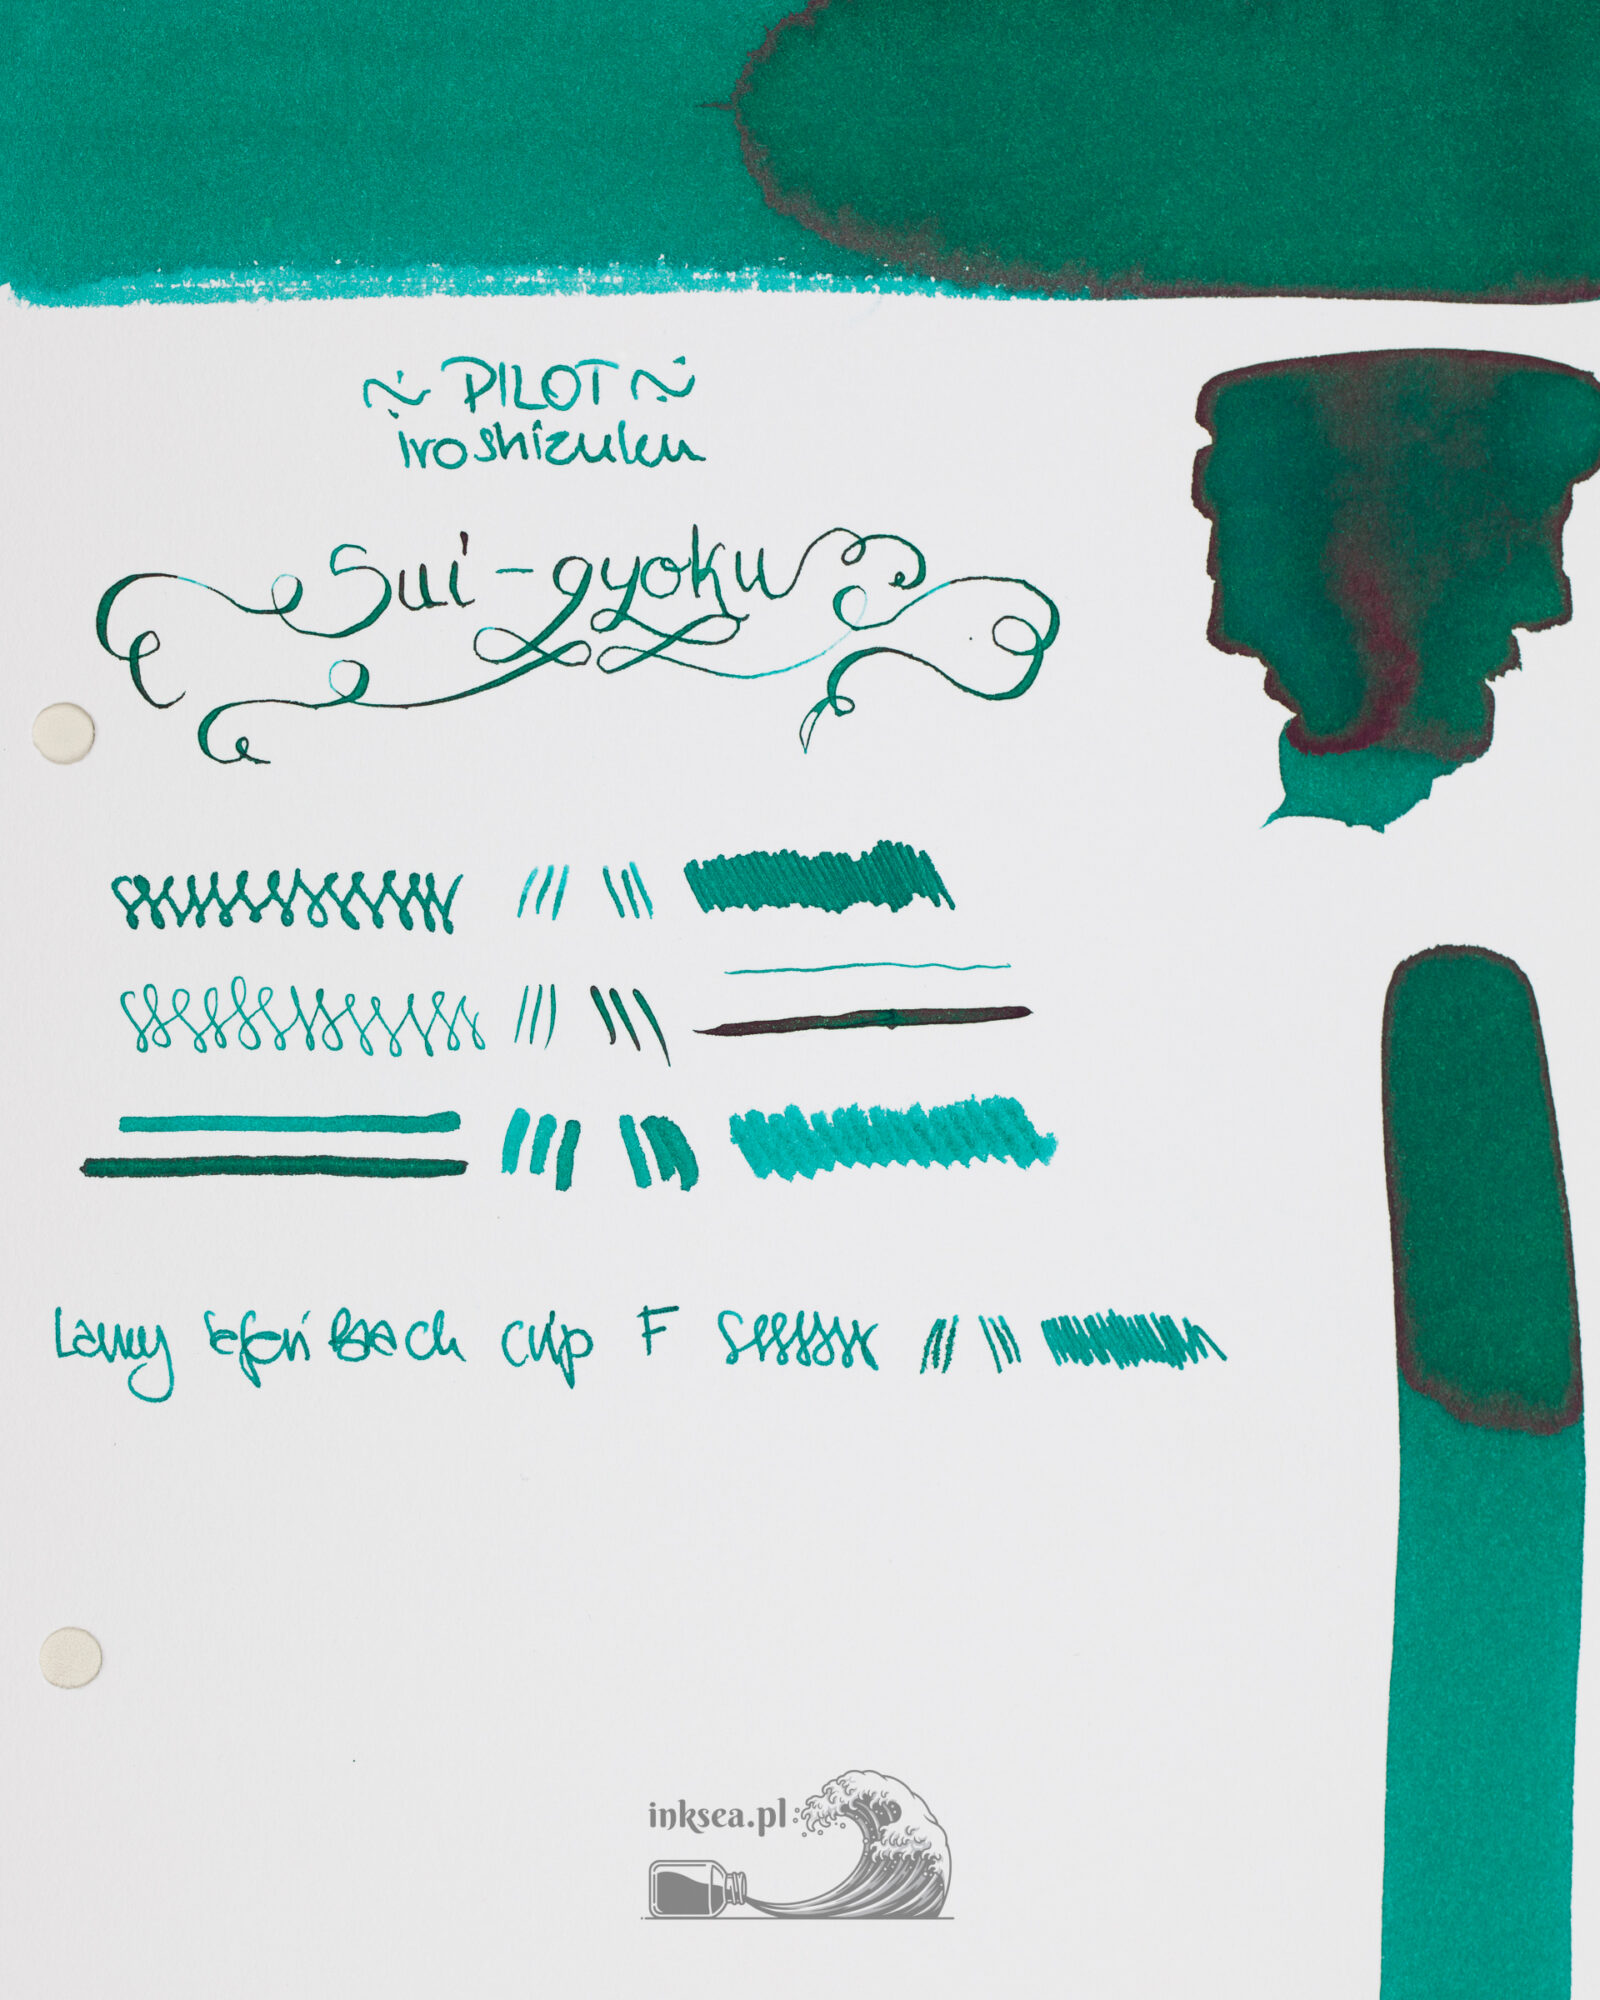 ~ PILOT ~
iroshizuku
Sui-gyoku
Lamy Safari Beach clip F
inksea.pl